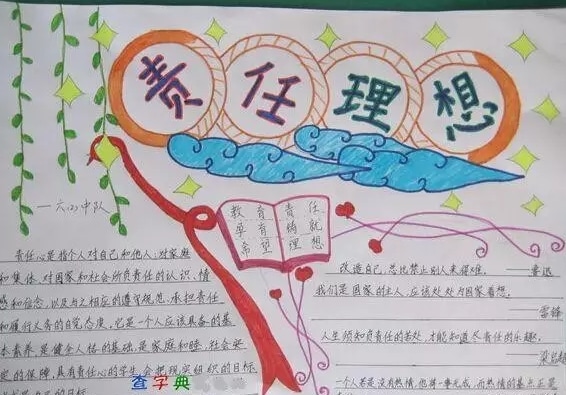 责任理想
六(2)中队
教育责任
孕育构就
希望理想
责任心是指个人对自己和他人,对家庭
和集体,对国家和社会所负责任的认识、情
感和信念,以及与之相应的遵守规范、承担责任
和履行义务的自觉态度。它是一个人应该具备的基
本素养,是健全人格的基础,是家庭和睦,社会安
定的保障。具有责任心的学生,会把现实组织的目标
的目标
改造自己,总比禁止别人来得难。——鲁迅
我们是国家的主人,应该处处为国家着想。
——雷锋
人生须知负责任的苦处,才能知道尽责任的乐趣。
——梁启超
一个人若是没有热情,他将一事无成,而热情的基点正是
查字典